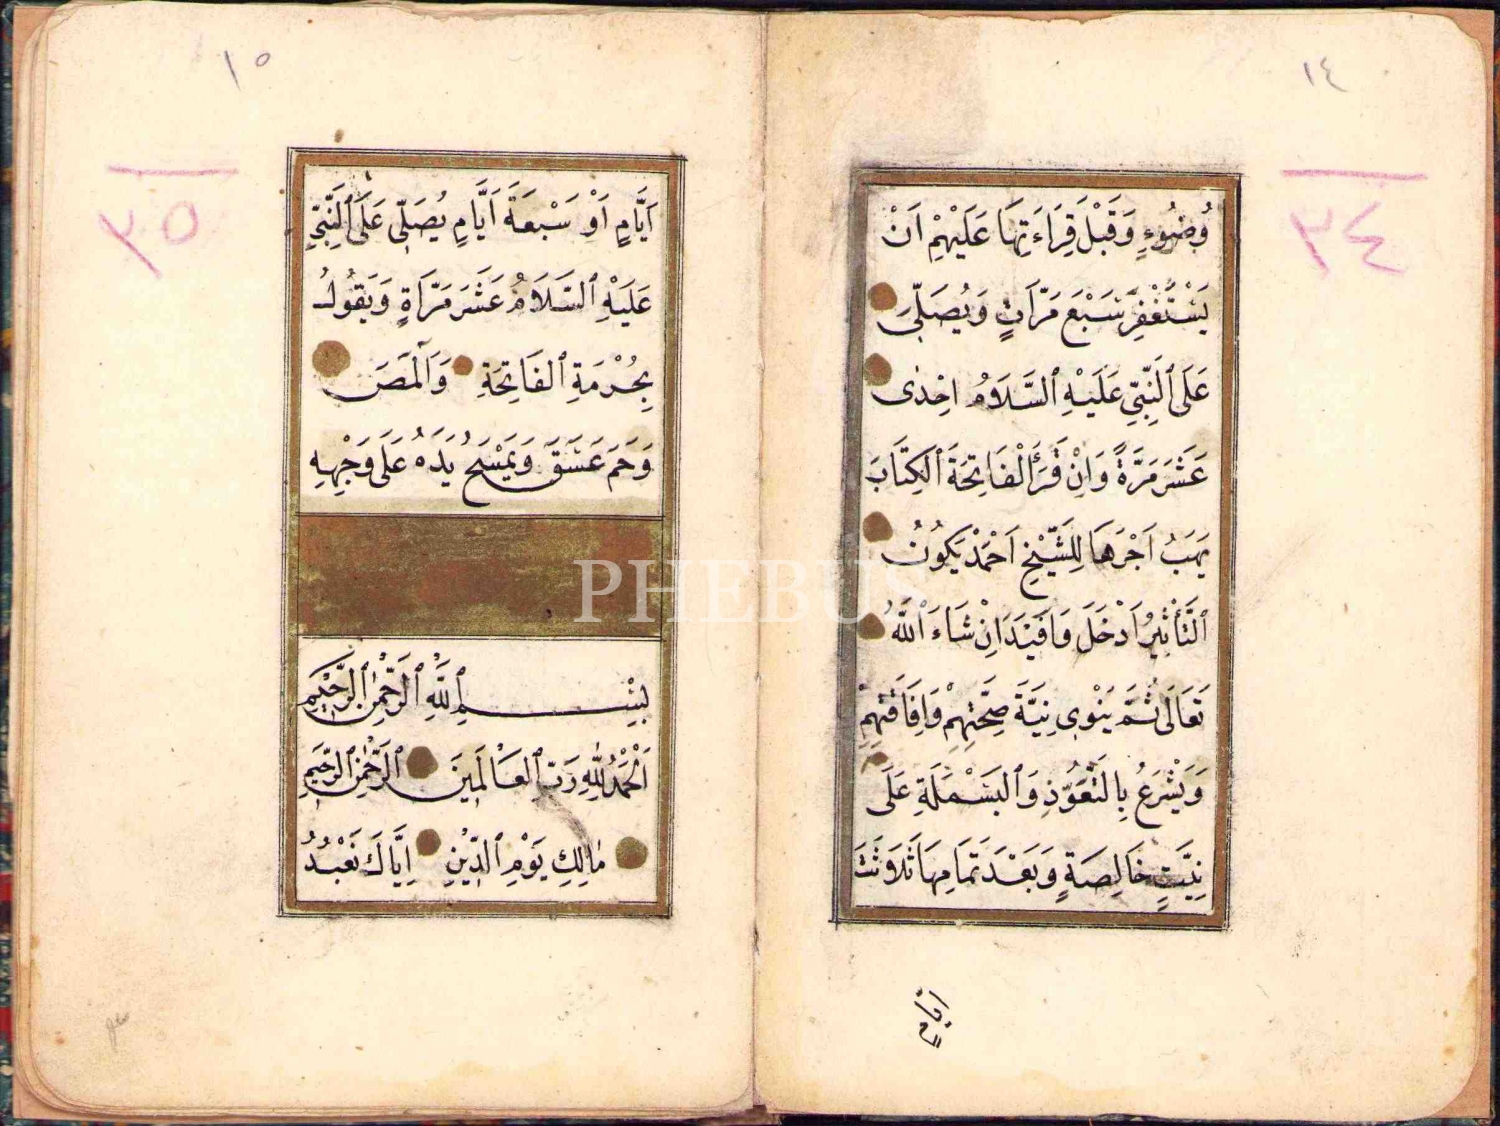 ١٤
٣٤
وُضُوءٍ وَقَبْلَ قِرَاءَتِهَا عَلَيْهِمْ اَنْ
يَسْتَغْفِرَ سَبْعَ مَرَّاتٍ وَيُصَلِّىَ
عَلَى النَّبِىِّ عَلَيْهِ السَّلَامُ اِحْدٰى
عَشَرَ مَرَّةً وَاِنْ قَرَأَ الْفَاتِحَةَ الْكِتَابَ
يَهَبُ اَجْرَهَا لِلشَّيْخِ اَحْمَدْ يَكُونُ
اَلتَّأْثِيرُ اَدْخَلَ وَافَيَدَ اِنْ شَاءَ اللّٰهُ
تَعَالَى ثُمَّ يَنْوِى نِيَّةَ صِحَّتِهِمْ وَاِفَاقَتِهِمْ
وَيَشْرَعُ بِالتَّعَوُّذِ وَالْبَسْمَلَةِ عَلَى
نِيَّتٍ خَالِصَةٍ وَبَعْدَ تَمَامِهَا ثَلَاثَتَ
اَيَّامٍ
١٥
٣٥
اَيَّامٍ اَوْ سَبْعَةَ اَيَّامٍ يُصَلِّى عَلَى النَّبِىِّ
عَلَيْهِ السَّلَامُ عَشَرَ مَرَّاةٍ وَيَقُولُ
بِحُرْمَةِ الْفَاتِحَةِ وَالٓمٓصٓ
وَحٰمٓ عٓسٓقٓ وَيَمْسَحُ يَدَهُ عَلَى وَجْهِهِ
بِسْمِ اللّٰهِ الرَّحْمٰنِ الرَّحِيمِ
اَلْحَمْدُ لِلّٰهِ رَبِّ الْعَالَمِينَ اَلرَّحْمٰنِ الرَّحِيمِ
مَالِكِ يَوْمِ الدِّينِ اِيَّاكَ نَعْبُدُ
PHEBUS